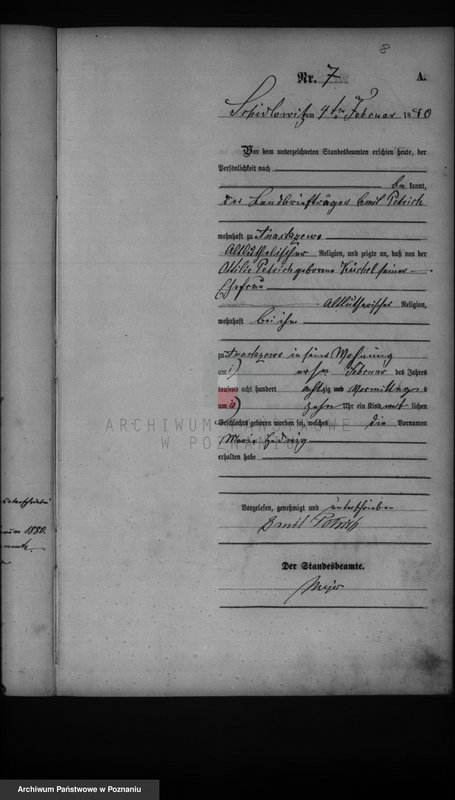 8
Nr. 7 A.
am 4ten Februar 1880
Vor dem unterzeichneten Standesbeamten erschien heute, der
Persönlichkeit nach
be kannt,
der Landbriefträger Emil Petrich
wohnhaft zu
Altlutherischer Religion, und zeigte an, daß von der
Ottilie Petrich geborene seiner
Ehefrau
Altlutherischer Religion,
wohnhaft bei ihm
zu in seiner Wohnung
am 1) ersten Februar des Jahres
tausend acht hundert achtzig und Vormittags
um 10) zehn Uhr ein Kind weib lichen
Geschlechts geboren worden sei, welches die Vornamen
Maria Hedwig
erhalten habe
Vorgelesen, genehmigt und unterschrieben
Emil Petrich
Der Standesbeamte.
Meyer
1880.
ARCHIWUM PAŃSTWOWE
W POZNANIU
Archiwum Państwowe w Poznaniu